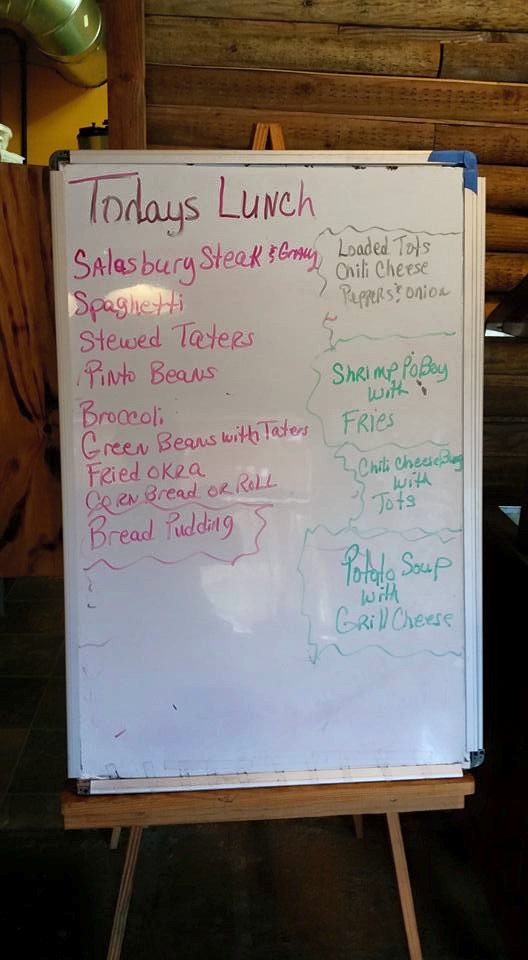 Todays Lunch
Salasbury Steak & Gravy
Spaghetti
Stewed Taters
Pinto Beans
Broccoli
Green Beans with Taters
Fried Okra
Corn Bread or Roll
Bread Pudding
Loaded Tots
Chili Cheese
Peppers & Onion
Shrimp PoBoy
with
Fries
Chili Cheese Burg
with
Tots
Potato Soup
with
Grill Cheese